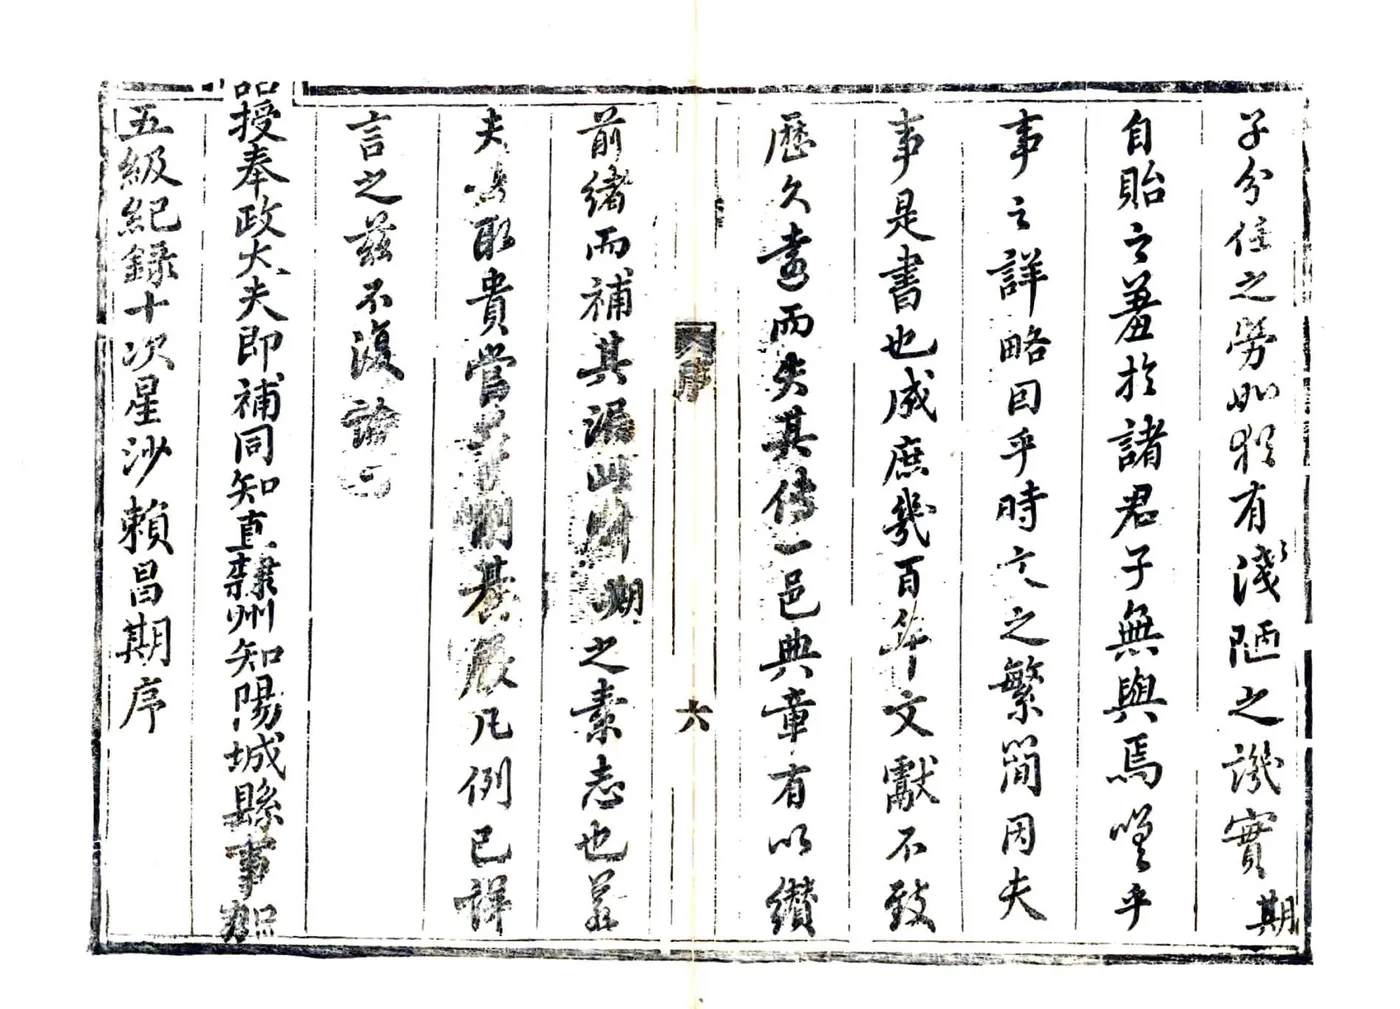 子分任之勞如猶有淺陋之譏實期
自貽之羞於諸君子無與焉嗟乎
事之詳略因乎時文之繁簡因夫
事是書也成庶幾百年文獻不致
歷久遠而失其傳一邑典章有以纘
序
六
前緒而補其漏此則期之素志也若
夫 取貴當 其嚴凡例已詳
言之茲不復論
誥授奉政大夫即補同知直隸州知陽城縣事加
五級紀錄十次星沙賴昌期序